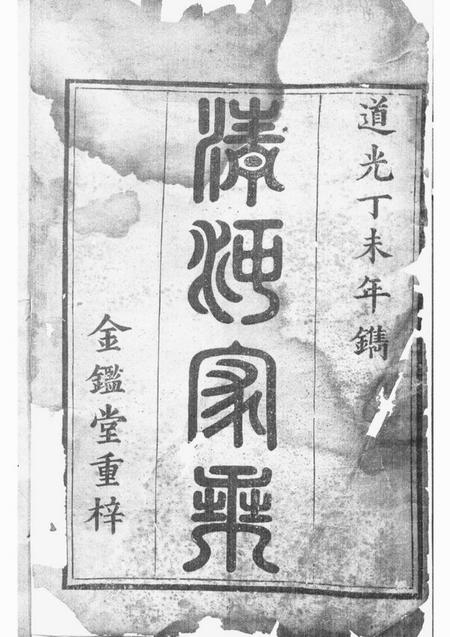 道光丁未年鐫
清河家乘
金鑑堂重梓